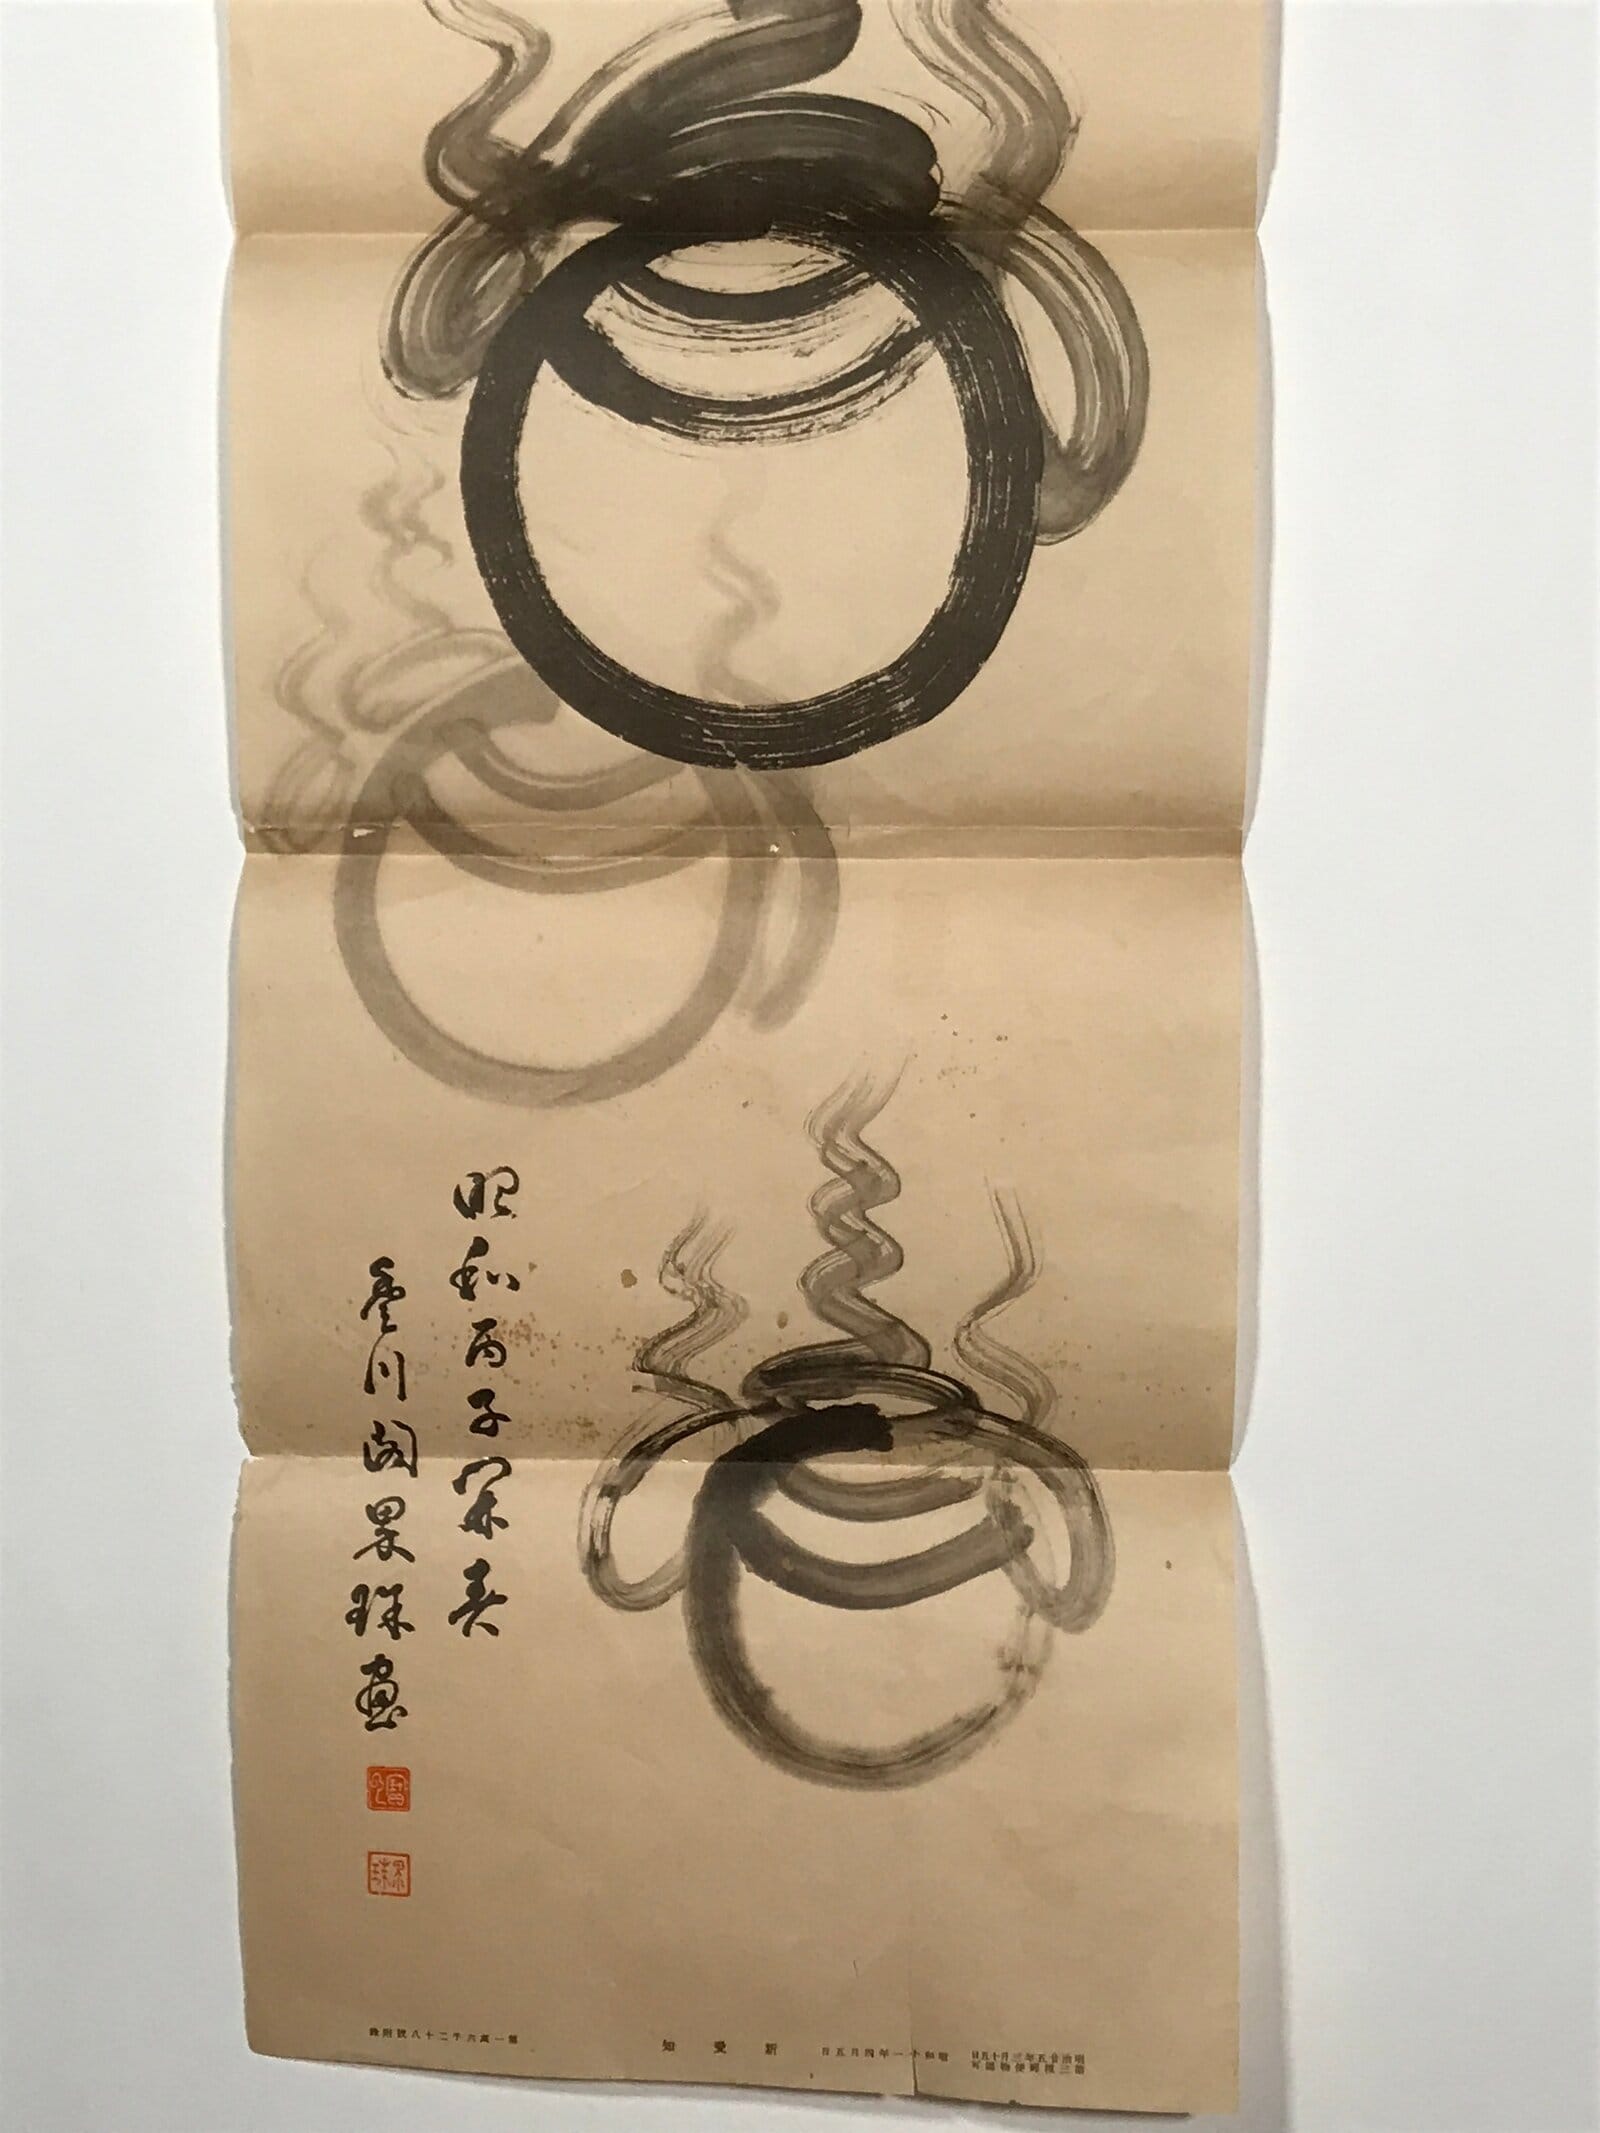 昭和丙子開春
豊川閣果珠畫
果珠
明治廿五年三月十五日
第三種郵便物認可
昭和十一年四月五日
新愛知
第一萬六千二十八號附錄